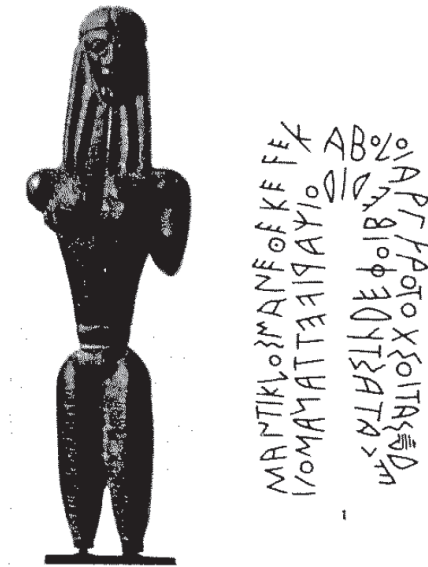 ΜΑΝΤΙΚΛΟΣΜΑΝΕΘΕΚΕϜΕΚΑΒΟΛΟΙΑΡΓΥΡΟΤΟΧΣΟΙΤΑΣΔΕ
ΚΑΤΑΣΤΥΔΕΦΟΙΒΕΔΙΔΟΙΧΑΡΙϜΕΤΤΑΝΑΜΟΙ
1